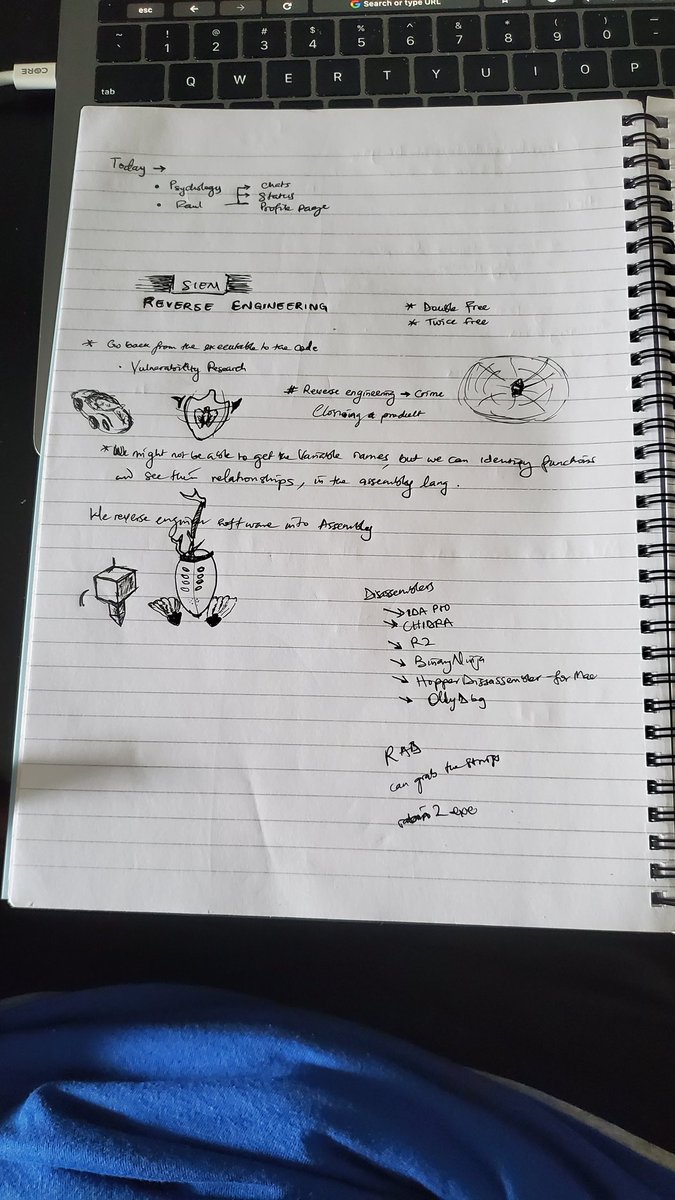 esc
Search or type URL
~ ! @ # $ % ^ & * ( ) —
` 1 2 3 4 5 6 7 8 9 0 -
tab Q W E R T Y U I O P
CORE
Today →
• Psychology → Chats
→ Status
• Raul Profile page
SIEM
REVERSE ENGINEERING
* Double Free
* Twice free
* Go back from the executable to the code
• Vulnerability Research
# Reverse engineering → Crime
Cloning a product
* We might not be able to get the Variable names, but we can identify functions
and see their relationships, in the assembly lang.
We reverse engineer software into Assembly
Disassemblers
→ IDA Pro
→ GHIDRA
→ R2
→ Binary Ninja
→ Hopper Dissassembler - for Mac
→ Olly Dbg
can grab the strings
2 exe